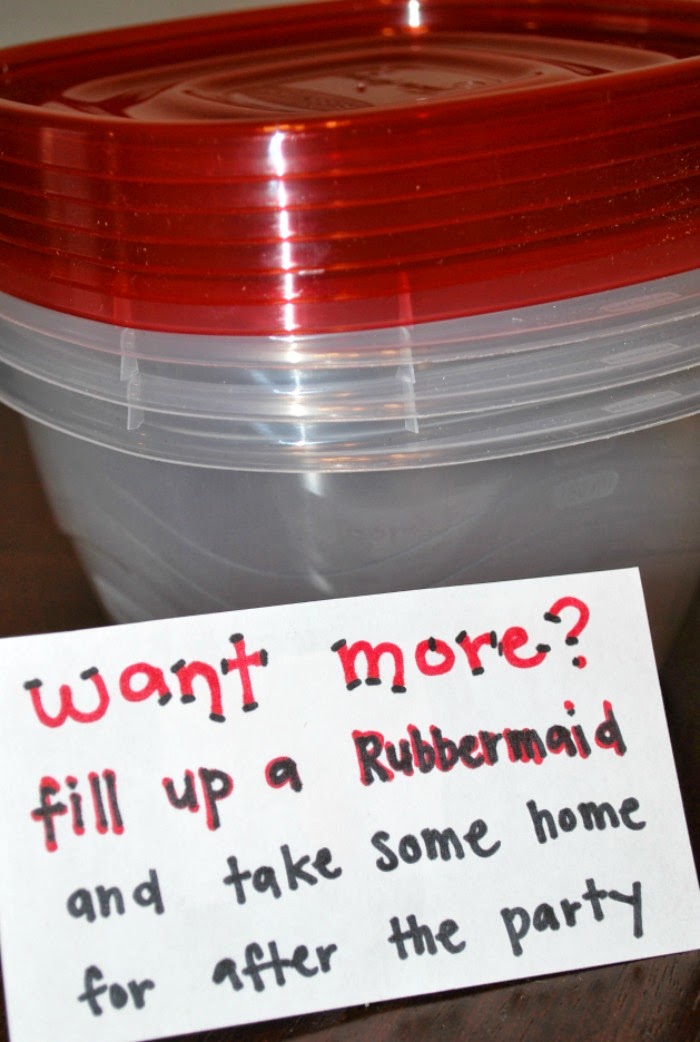 want more?
fill up a Rubbermaid
and take some home
for after the party